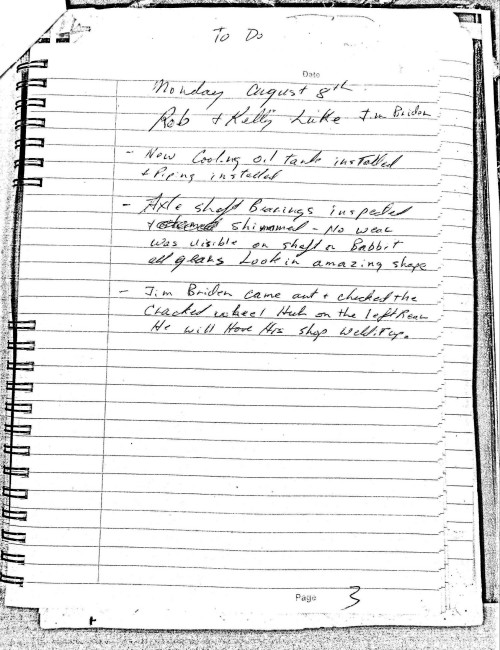 To Do
Date
Monday August 8th
Rob + Kelly Luke Jim Briden
- New Cooling oil tank installed
+ Piping installed
- Axle shaft Bearings inspected
+ shimmed - No wear
was visible on shaft or Babbit
all gears Look in amazing shape
- Jim Briden came out + checked the
Cracked wheel Hub on the left Rear
He will Have His shop Weld it up.
Page 3